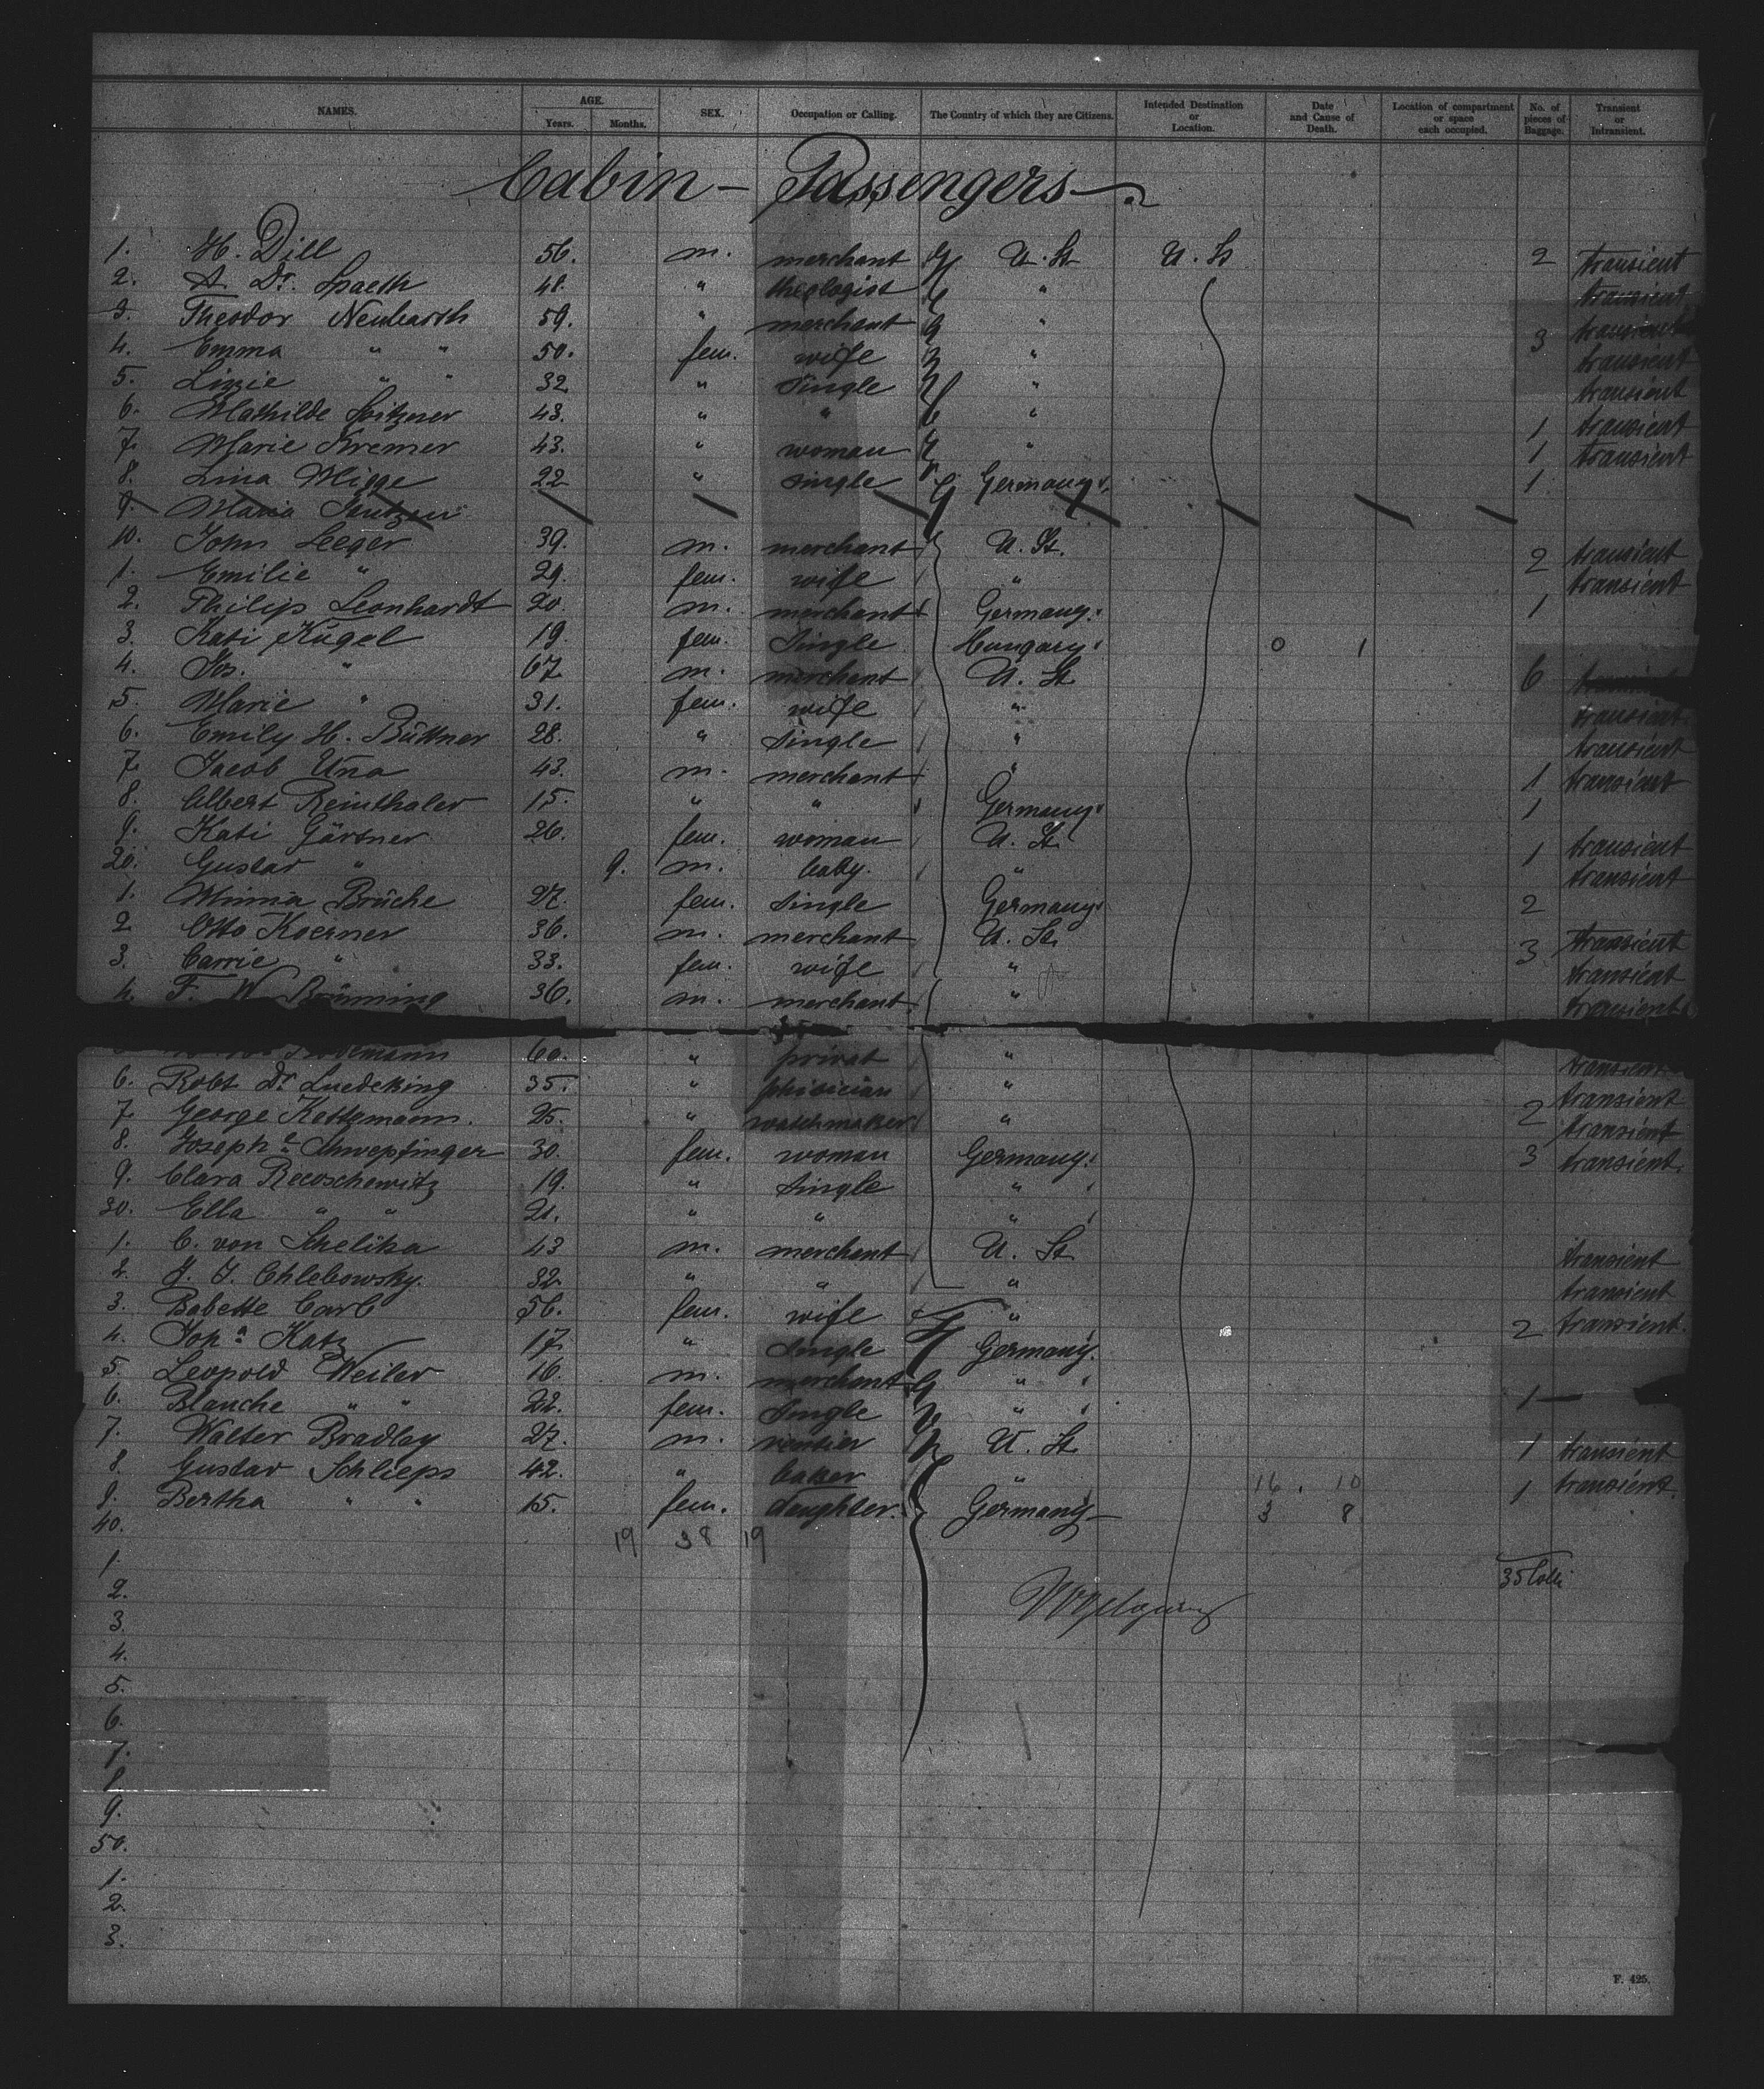 NAMES. AGE. Years. Months. SEX. Occupation or Calling. The Country of which they are Citizens. Intended Destination or Location. Date and Cause of Death. Location of compartment or space each occupied. No. of pieces of Baggage. Transient or Intransient.
Cabin - Passengers
1. H. Dill 56. m. merchant U. St U. St 2 transient
2. A. Dr. Spaeth 48. " theologist " transient
3. Theodor 59. " merchant " 3 transient
4. Emma " " 50. fem. wife " transient
5. Lizzie " " 32 " single " transient
6. Mathilde Spitzner 43. " " " 1 transient
7. Marie Kremer 43. " woman " 1 transient
8. Lina Migge 22 " single Germany. 1.
9. Maria
10. John Seeger 39. m. merchant U. St. 2 transient
1. Emilie " 29. fem. wife " transient
2. Philip Leonhardt 20. m. merchant Germany. 1
3. Kati Kugel 19. fem. Single Hungary. 0 1
4. Jos. " 67 m. merchant U. St 6
5. Marie " 31. fem. wife " transient
6. Emily H. Büttner 28. " Single " transient
7. Jacob Una 43. m. merchant " 1 transient
8. Albert Reinthaler 15. " " Germany. 1
9. Kati Gärtner 26. fem. woman U. St. 1 transient
20. Gustav " 9. m. baby. " transient
1. Minna Brüche 27. fem. Single Germany. 2
2 Otto Koerner 36. m. merchant U. St. 3 transient
3. Carrie " 33. fem. wife " transient
4. F. W. Brünning 36. m. merchant " transient
60. " privat " transient
6. Robt Dr. Luedeking 35. " phisician " transient
7 George Kettmann. 25. " watchmaker " 2 transient
8. Josephe Schwepfinger 30. fem. woman Germany. 3 transient.
9. Clara Recoschewitz 19. " Single "
30. Ella " " 21. " " "
1. C. von Schelika 43 m. merchant U. St transient
2. J. J. Chlebowsky. 32 " " " transient
3. Babette Carl 56. fem. wife " 2 transient.
4. Joha Katz 17. " Single Germany.
5. Leopold Weiler 16. m. merchant "
6. Blanche " " 22. fem. Single " 1
7. Walter Bradlay 27. m. rentier U. St 1 transient
8. Gustav Schlieps 42. " baker " 16. 10 1 transient.
9. Bertha " " 15. fem. daughter. Germany 3 8
40. 19 38 19
1. 35 Colli
2.
3.
4.
5.
6.
7.
8
9.
50.
1.
2.
3.
F. 425.